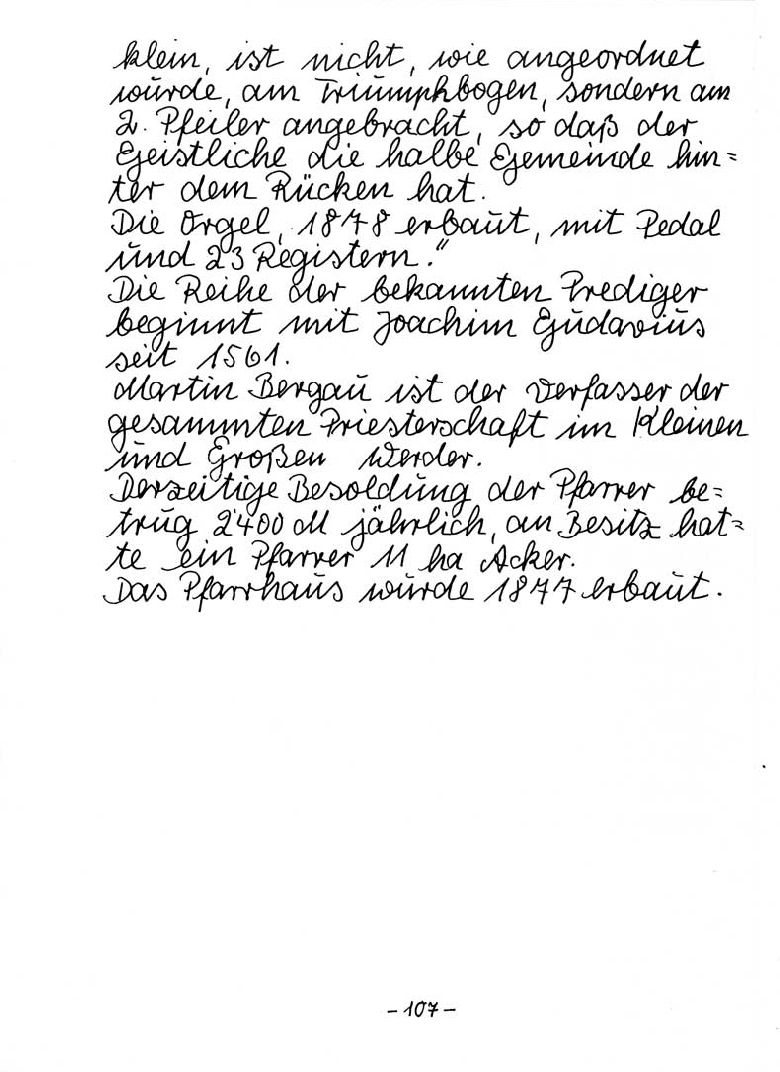 klein, ist nicht, wie angeordnet
wurde, am Triumphbogen, sondern am
2. Pfeiler angebracht, so daß der
Geistliche die halbe Gemeinde hin=
ter dem Rücken hat.
Die Orgel, 1878 erbaut, mit Pedal
und 23 Registern."
Die Reihe der bekannten Prediger
beginnt mit Joachim Gudavius
seit 1561.
Martin Bergau ist der Verfasser der
gesammten Priesterschaft im Kleinen
und Großen Werder.
Derzeitige Besoldung der Pfarrer be=
trug 2400 M jährlich, an Besitz hat=
te ein Pfarrer 11 ha Acker.
Das Pfarrhaus wurde 1877 erbaut.
- 107 -